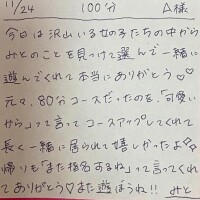 11/24 100分 A様
今日は沢山いる女の子たちの中から
みとのことを見つけて選んで一緒に
遊んでくれて本当にありがとう♡♡
元々、80分コースだったのを、「可愛い
から」って言ってコースアップしてくれて
長く一緒に居られて嬉しかったよ
帰りも「また指名するね」って言ってくれ
てありがとう♡また遊ぼうね!! みと